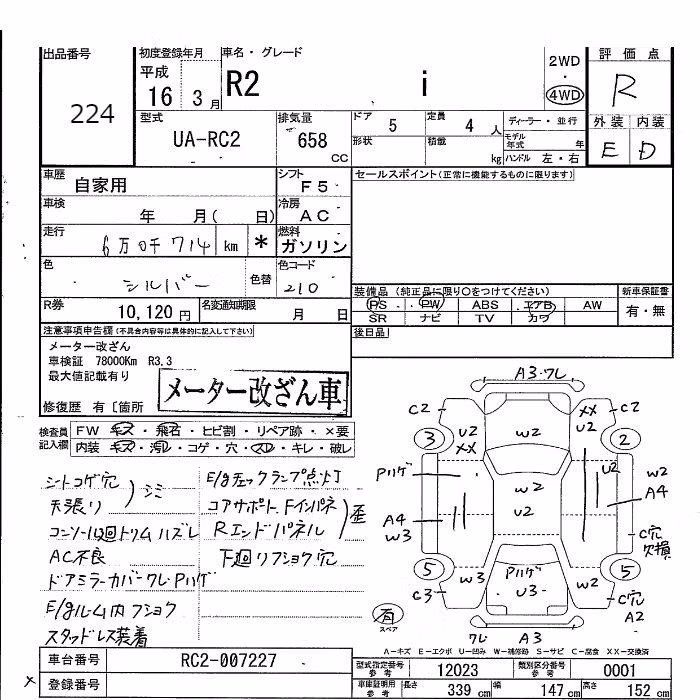 出品番号
224
初度登録年月
平成
16 3月
車名・グレード
R2 i
2WD
・
4WD
評価点
R
外装 内装
E D
型式
UA-RC2
排気量
658 CC
ドア 5
定員 4人
形状
積載 kg
ディーラー・並行
モデル年式 年
ハンドル 左・右
車歴 自家用
シフト F5
車検 年 月( 日)
冷房 AC
走行 6万0千714 km *
燃料 ガソリン
色 シルバー 色替
色コード 210
R券 10,120円
名変通知期限 月 日
セールスポイント(正常に機能するものに限ります)
装備品 (純正品に限り○をつけてください)
PS ・ PW ABS エアB AW
SR ナビ TV カワ
新車保証書
有・無
後日品
注意事項申告欄(不具合内容等は具体的に記入して下さい)
メーター改ざん
車検証 78000Km R3.3
最大値記載有り
メーター改ざん車
修復歴 有〔箇所
検査員記入欄
FW キズ・飛石・ヒビ割・リペア跡・×要
内装 キズ・汚レ・コゲ・穴・スレ・キレ・破レ
シートコゲ穴
天張り)シミ
コンソール廻トリムハズレ
AC不良
ドアミラーカバーワレ・Pハゲ
E/gルーム内フショク
スタッドレス装着
E/gチェックランプ点灯
コアサポート、Fインパネ
Rエンドパネル)歪
下廻リフショク穴
A3・ワレ
C2
U2
XX
3
W2
XX
U2
C2
2
Pハゲ
W2
U2
U2
W2
A4
A4
W3
C穴
欠損
5
W3
C3
Pハゲ
U3
W2
5
C穴
A2
有
スペア
ワレ A3
A-キズ E-エクボ U-凹み W-補修跡 S-サビ C-腐食 XX-交換済
車台番号 RC2-007227
登録番号
型式指定番号参考 12023
類別区分番号参考 0001
車庫証明用参考
長さ 339 cm
幅 147 cm
高さ 152 cm